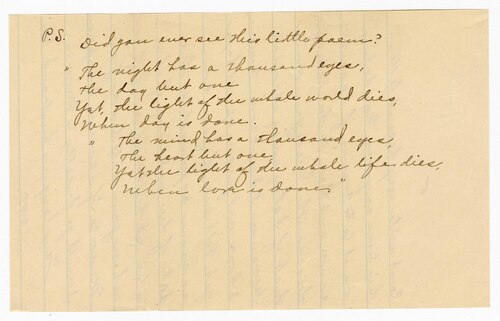 P.S. Did you ever see this little poem?
"The night has a thousand eyes,
The day but one
Yet, the light of the whole world dies,
When day is done.
"The mind has a thousand eyes,
The heart but one
Yet the light of the whole life dies,
When love is done."